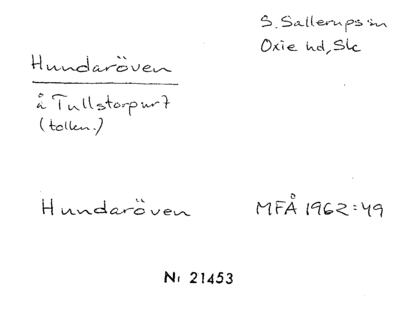 S. Sallerups sn
Oxie hd, Sk
Hundaröven
å Tullstorp nr 7
(tolkn.)
Hundaröven MFÅ 1962:49
Nr 21453